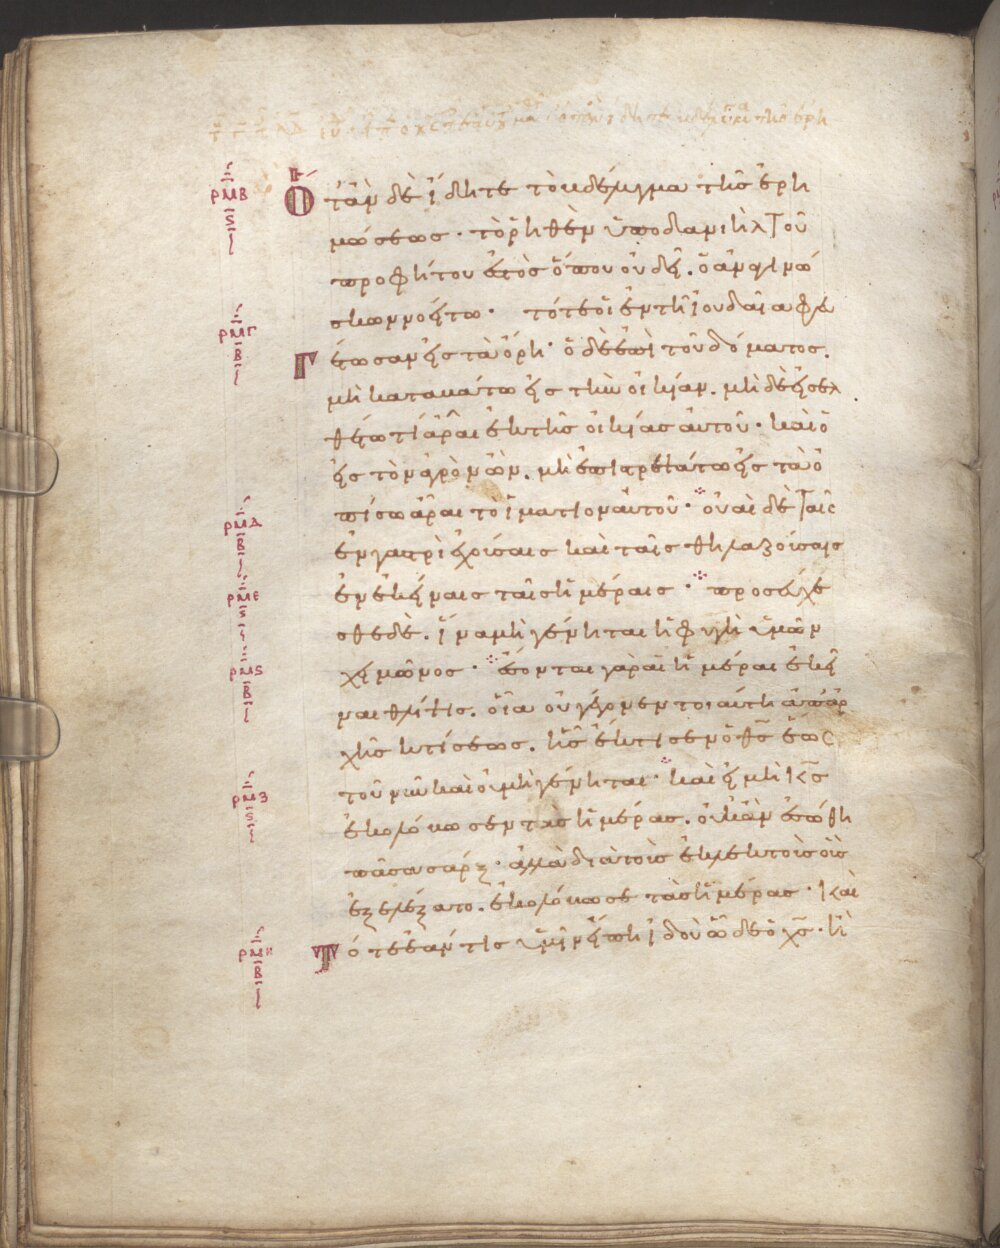 ρμβ
ϛ
ρμγ
β
ρμδ
β
ρμε
ϛ
ρμϛ
β
ρμζ
ϛ
ρμη
β
Ὅταν δὲ ἴδητε τὸ βδέλυγμα τῆς ἐρη
μώσεως · τὸ ῥηθὲν ὑπὸ δανιὴλ τοῦ
προφήτου ἑστὸς ὅπου οὐ δεῖ. ὁ ἀναγινώ
σκων νοείτω · τότε οἱ ἐν τῆ ἰουδαία φευ
Γέτωσαν εἰς τὰ ὄρη · ὁ δὲ ἐπὶ τοῦ δώματος.
μὴ καταβάτω εἰς τὴν οἰκίαν. μὴ δὲ εἰσελ
θέτω τί ἆραι ἐκ τῆς οἰκίας αὐτοῦ · καὶ ὁ
εἰς τὸν ἀγρὸν ὢν. μὴ ἐπιστρεψάτω εἰς τὰ ὀ
πίσω ἆραι τὸ ἱμάτιον αὐτοῦ · οὐαὶ δὲ ταῖς
ἐν γαστρὶ ἐχούσαις καὶ ταῖς θηλαζούσαις
ἐν ἐκείναις ταῖς ἡμέραις · προσεύχε
σθε δὲ. ἵνα μὴ γένηται ἡ φυγὴ ὑμῶν
χειμῶνος · ἔσονται γὰρ αἱ ἡμέραι ἐκεῖ
ναι θλίψις. οἵα οὐ γέγονεν τοιαύτη ἀπ' ἀρ
χῆς κτίσεως. ἧς ἔκτισεν ὁ θς ἕως
τοῦ νῦν καὶ οὐ μὴ γένηται · καὶ εἰ μὴ κς
ἐκολόβωσεν τὰς ἡμέρας. οὐκ ἂν ἐσώθη
πᾶσα σάρξ · ἀλλὰ διὰ τοὺς ἐκλεκτοὺς οὓς
ἐξελέξατο. ἐκολόβωσε τὰς ἡμέρας · καὶ
Τότε ἐάν τις ὑμῖν εἴπη ἰδοὺ ὧδε ὁ χς · ἢ